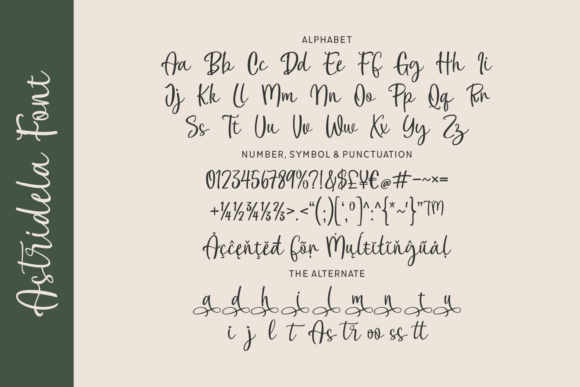 Astridela Font
ALPHABET
Aa Bb Cc Dd Ee Ff Gg Hh Ii
Jj Kk Ll Mm Nn Oo Pp Qq Rr
Ss Tt Uu Vv Ww Xx Yy Zz
NUMBER, SYMBOL & PUNCTUATION
0123456789%?!&$£¥€@#-~×=
+¼½¾⅓⅔>.<“(;)[‘,º]^:^{*~'}”™
THE ALTERNATE
a d h i l m n t u
i j l t As tr oo ss tt